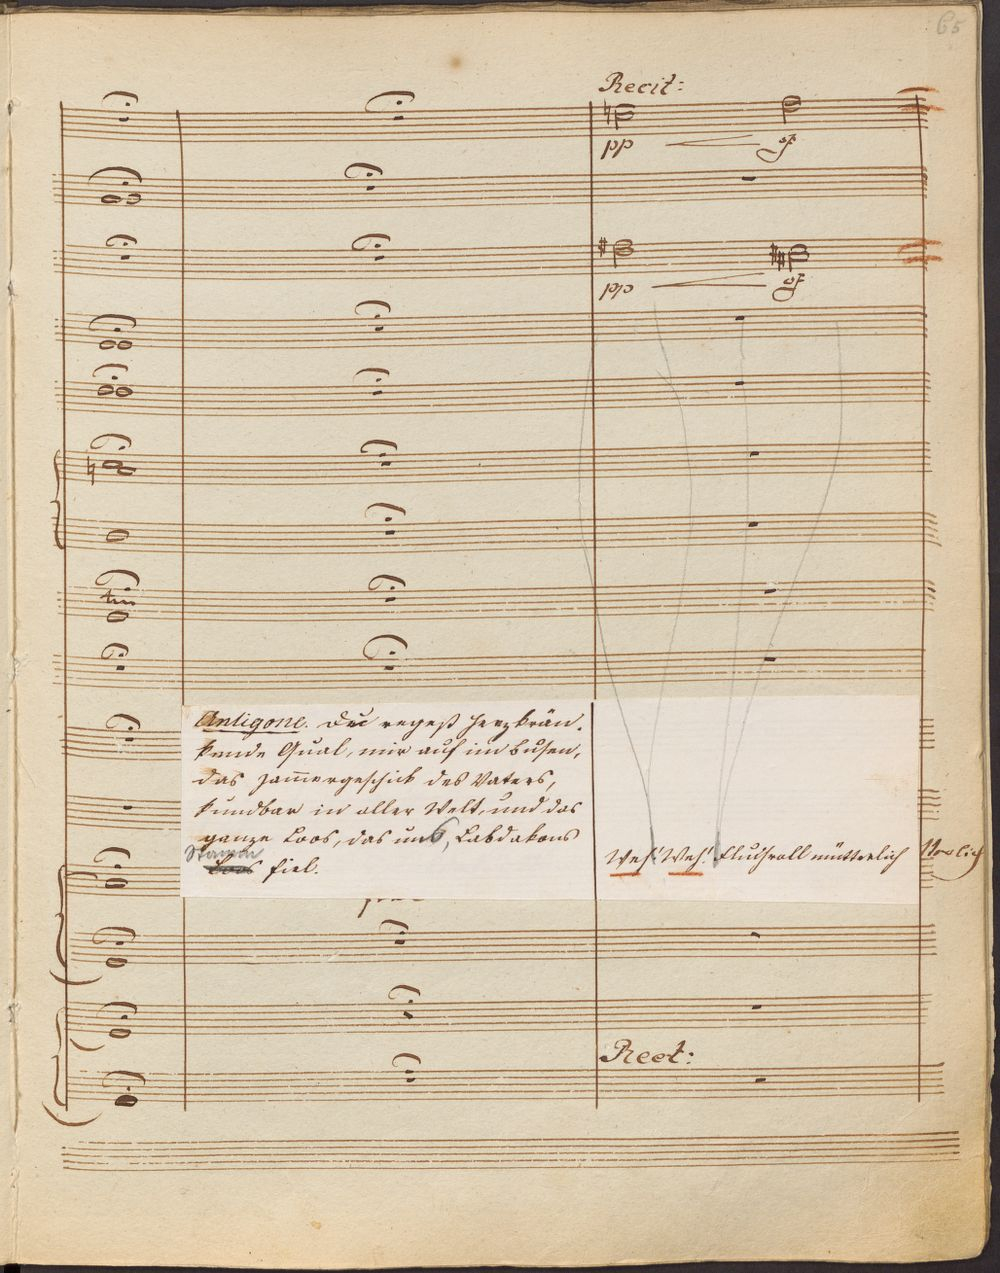 65
Recit:
pp sf
pp sf
Antigone. Du regest herzkrän-
kende Qual, mir auf im Busen,
das Jam̄ergeschick des Vaters,
kundbar in aller Welt, und das
ganze Loos, das uns, Labdakons
Stamm
Loos fiel.
Weh! Weh! Fluchvoll mütterlich
Rect: